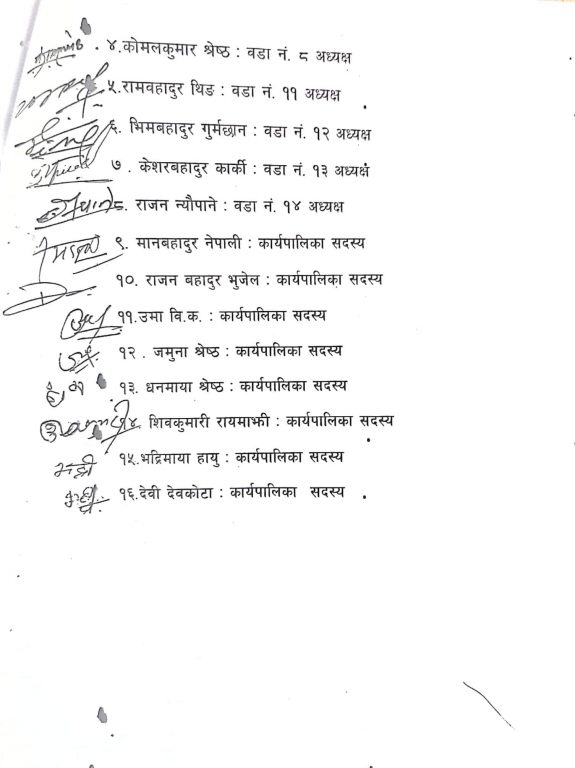 ४.कोमलकुमार श्रेष्ठ : वडा नं. ८ अध्यक्ष
५.रामवहादुर थिङ : वडा नं. ११ अध्यक्ष
६. भिमबहादुर गुर्मछान : वडा नं. १२ अध्यक्ष
७ . केशरबहादुर कार्की : वडा नं. १३ अध्यक्ष
८. राजन न्यौपाने : वडा नं. १४ अध्यक्ष
९. मानबहादुर नेपाली : कार्यपालिका सदस्य
१०. राजन बहादुर भुजेल : कार्यपालिका सदस्य
११.उमा वि.क. : कार्यपालिका सदस्य
१२ . जमुना श्रेष्ठ : कार्यपालिका सदस्य
१३. धनमाया श्रेष्ठ : कार्यपालिका सदस्य
१४. शिवकुमारी रायमाझी : कार्यपालिका सदस्य
१५.भद्रिमाया हायु : कार्यपालिका सदस्य
१६.देवी देवकोटा : कार्यपालिका सदस्य